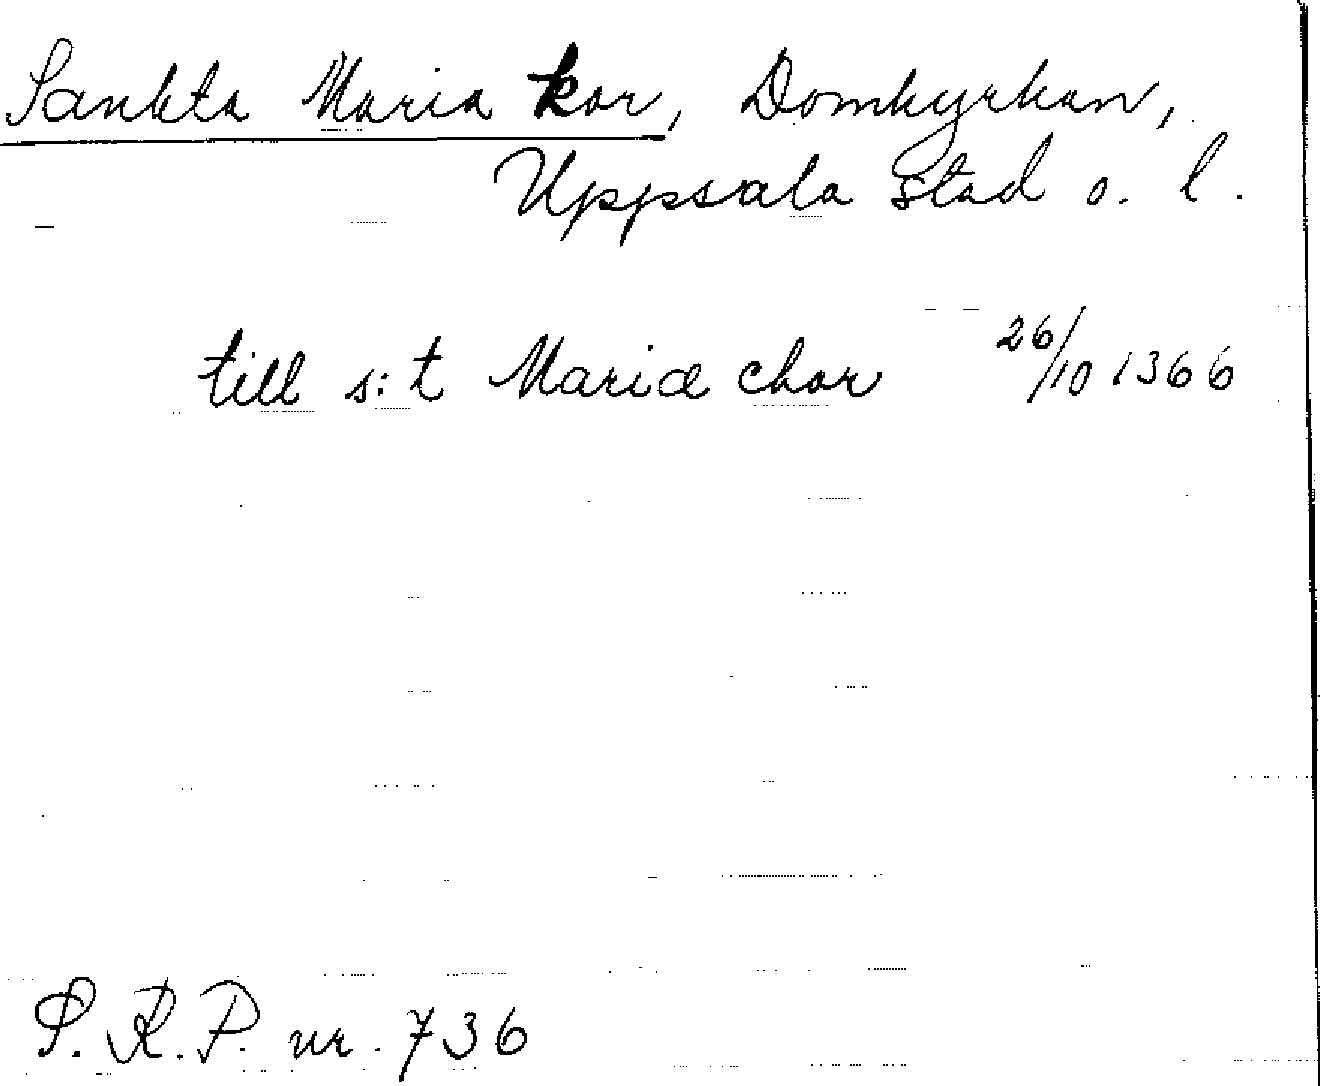 Sankta Maria kor, Domkyrkan,
Uppsala stad o. l.
till s:t Mariæ chor 26/10 1366
S. R. P. nr. 736